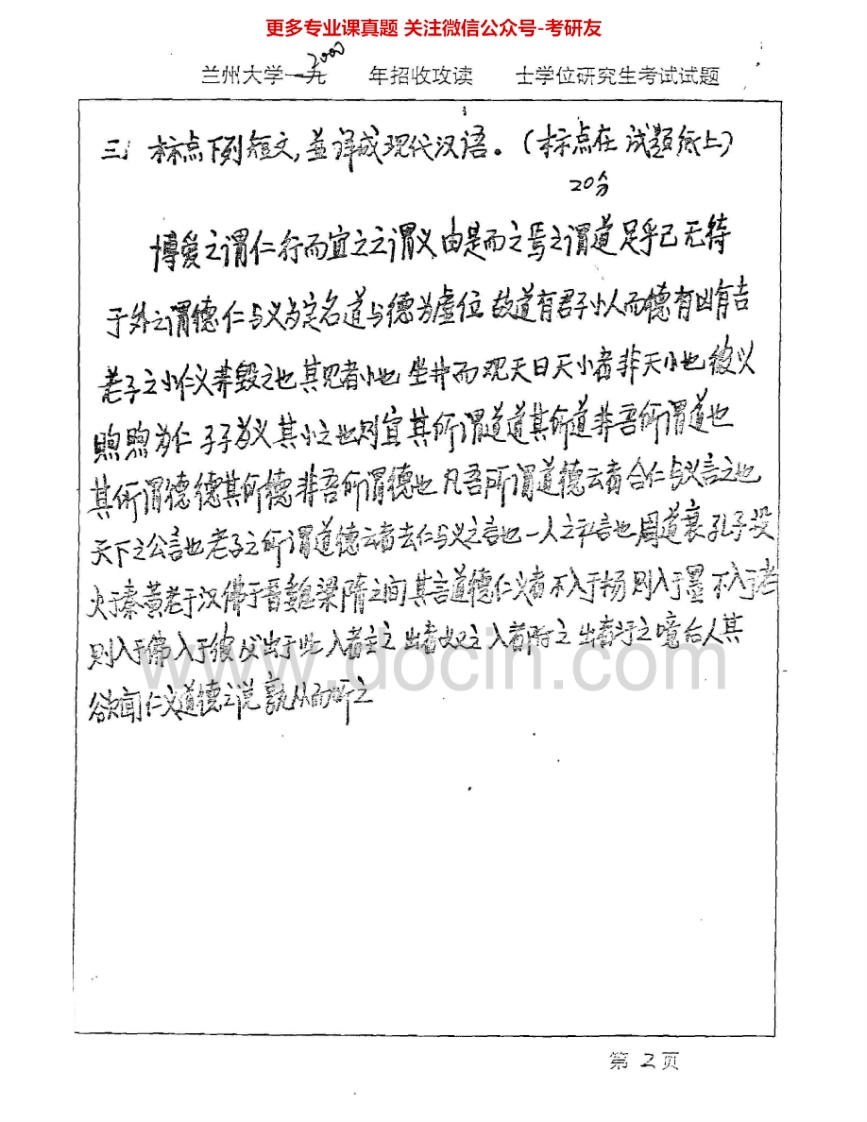 更多专业课真题 关注微信公众号-考研友
2000
兰州大学一九 年招收攻读 士学位研究生考试试题
三、标点下列短文,并译成现代汉语。(标点在试题纸上)
20分
博爱之谓仁行而宜之之谓义由是而之焉之谓道足乎己无待
于外之谓德仁与义为定名道与德为虚位故道有君子小人而德有凶有吉
老子之小仁义非毁之也其见者小也坐井而观天曰天小者非天小也彼以
煦煦为仁孑孑为义其小之也则宜其所谓道道其所道非吾所谓道也
其所谓德德其所德非吾所谓德也凡吾所谓道德云者合仁与义言之也
天下之公言也老子之所谓道德云者去仁与义之言也一人之私言也周道衰孔子没
火于秦黄老于汉佛于晋魏梁隋之间其言道德仁义者不入于杨则入于墨不入于老
则入于佛入于彼必出于此入者主之出者奴之入者附之出者污之噫后人其
欲闻仁义道德之说孰从而听之
www.docin.com
第 2 页